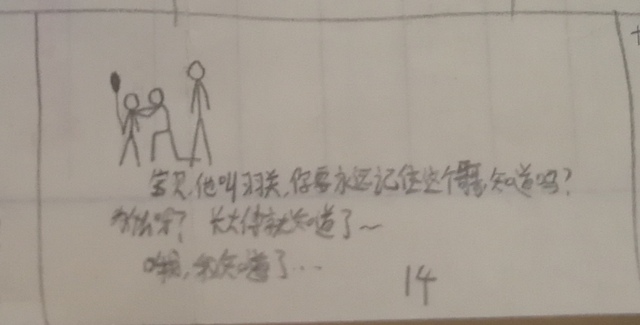 宝贝,他叫羽关,你要永远记住这个哥哥,知道吗?
为什么呀? 长大你就知道了~
哦,我知道了…
14